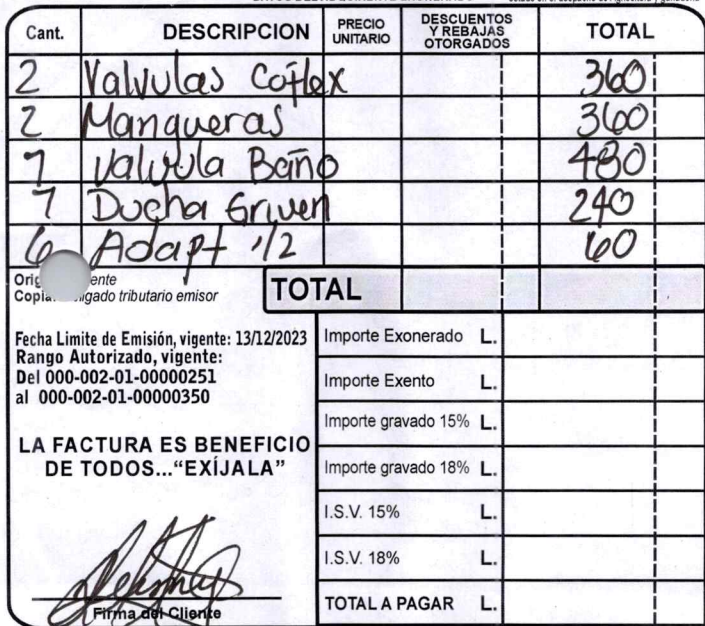 Cant. DESCRIPCION PRECIO UNITARIO DESCUENTOS Y REBAJAS OTORGADOS TOTAL
2 Valvulas Coflex 360
2 Mangueras 360
1 Valvula Baño 480
1 Ducha Griven 240
6 Adapt 1/2 60
TOTAL
Copia: tributario emisor
Fecha Limite de Emisión, vigente: 13/12/2023
Rango Autorizado, vigente:
Del 000-002-01-00000251
al 000-002-01-00000350
LA FACTURA ES BENEFICIO
DE TODOS..."EXÍJALA"
Firma del Cliente
Importe Exonerado L.
Importe Exento L.
Importe gravado 15% L.
Importe gravado 18% L.
I.S.V. 15% L.
I.S.V. 18% L.
TOTAL A PAGAR L.